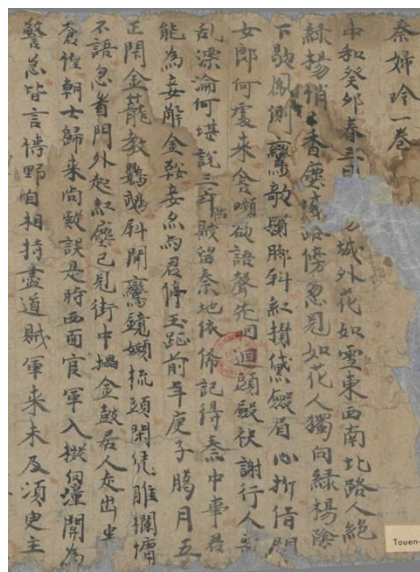 秦婦吟一卷
中和癸卯春三月城外花如雪東西南北路人絕
綠楊悄香塵滅路傍忽見如花人獨向綠楊陰
下歇鳳側鸞欹鬢腳斜紅攢黛斂眉心折借問
女郎何處來含嚬欲語聲先咽迴頭斂袂謝行人喪
亂漂淪何堪說三年陷賊留秦地依俙記得秦中事君
能為妾解金鞍妾亦為君停玉趾前年庚子臘月五
正閉金籠教鸚鵡斜開鸞鏡嬾梳頭閑凭雕欄慵
不語忽看門外起紅塵已見街中擂金鼓居人走出半
倉惶朝士歸來尚疑誤是時西面官軍入擬向潼關為
警急皆言博野自相持盡道賊軍來未及須臾主
Touen-